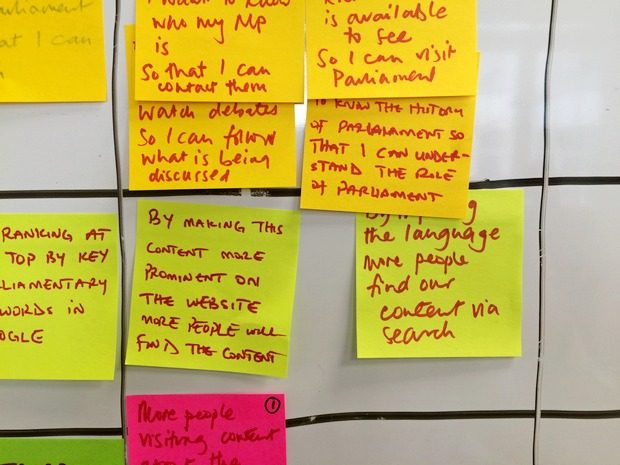 at I can
who my MP
is
So that I can
contact them
is available
to see
So I can visit
Parliament
watch debates
So I can follow
what is being
discursed
TO KNOW THE HISTORY
OF PARLAIAMENT SO
THAT I CAN UNDER-
STAND THE ROLE
OF PARLIAMENT
RANKING AT
TOP BY KEY
LIAMENTARY
WORDS IN
OGLE
BY MAKING THIS
CONTENT MORE
PROMINENT ON
THE WEBSITE
MORE PEOPLE WILL
FIND THE CONTENT
the language
more people
find our
content via
search
More people
1
visiting content